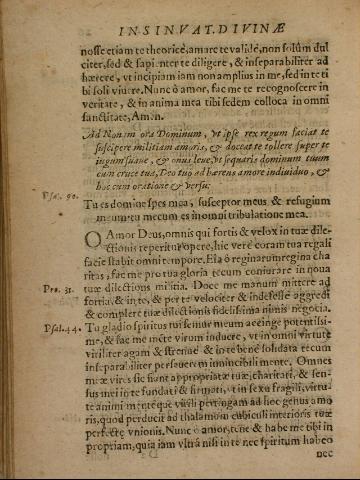 INSINVAT. DIVINÆ
nosse etiam te theoricè, amare te validè, non solùm dul
citer, sed & sapienter te diligere, & inseparabiliter ad
hærere, vt incipiam iam non amplius in me, sed in te ti
bi soli viuere. Nunc ô amor, fac me te recognoscere in
veritate, & in anima mea tibi sedem colloca in omni
sanctitate, Amen.
Ad Nonam ora Dominum, vt ipse rex regum faciat te
suscipere militiam amoris, & doceat te tollere super te
iugum suaue, & onus leue, vt sequaris dominum tuum
cum cruce tua, Deo tuo adhærens amore indiuiduo, &
hoc cum oratione & versu;
Psa. 90.
Tu es domine spes mea, susceptor meus & refugium
meum tu mecum es in omni tribulatione mea.
O Amor Deus, omnis qui fortis & velox in tuæ dile-
ctionis reperitur opere, hic verè coram tua regali
facie stabit omni tempore. Eia ô reginarum regina cha
ritas, fac me pro tua gloria tecum coniurare in noua
Pro. 31. tuæ dilectionis militia. Doce me manum mittere ad
fortia, & in te, & per te velociter & indefessè aggredi
& complere tuæ dilectionis fidelissima nimis negocia.
Psal. 44. Tu gladio spiritus tui femur meum accinge potentissi-
me, & fac me mente virum induere, vt in omni virtute
viriliter agam & strenuè & in te bene solidata tecum
inseparabiliter perseuerem inuincibili mente. Omnes
meæ vires sic fiant appropriatæ tuæ, charitati, & sen-
sus mei in te fundati & firmati, vt in sexu fragili, virtu-
te animi menteque virili pertingam ad hoc genus amo
ris, quod perducit ad thalamum cubiculi interioris tuæ
perfectæ vnionis. Nunc ô amor, tene & habe me tibi in
propriam, quia iam vltrà nisi in te nec spiritum habeo
nec